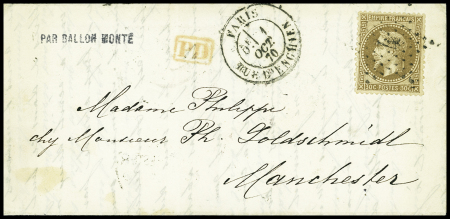 PAR BALLON MONTÉ
PD
PARIS
1
OCT
70
RUE D'ENGHIEN
EMPIRE FRANÇAIS
Madame Philippe
chy Monsieur Ph. Goldschmidt
Manchester